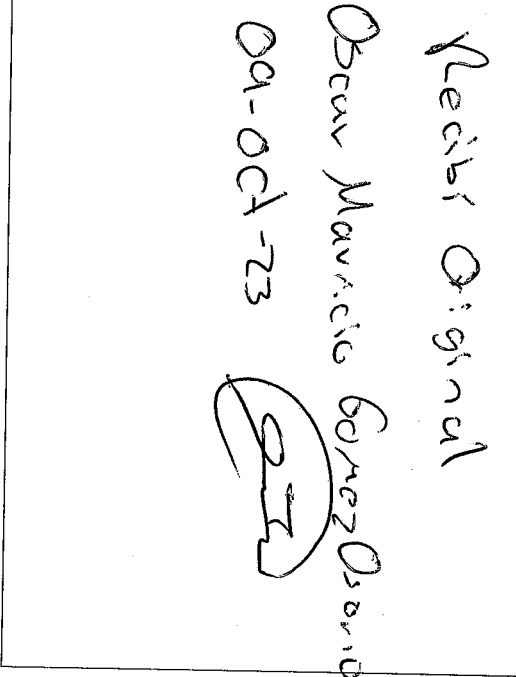 Recibí Original
Oscar Mauricio Gomez Osorio
09-Oct-23